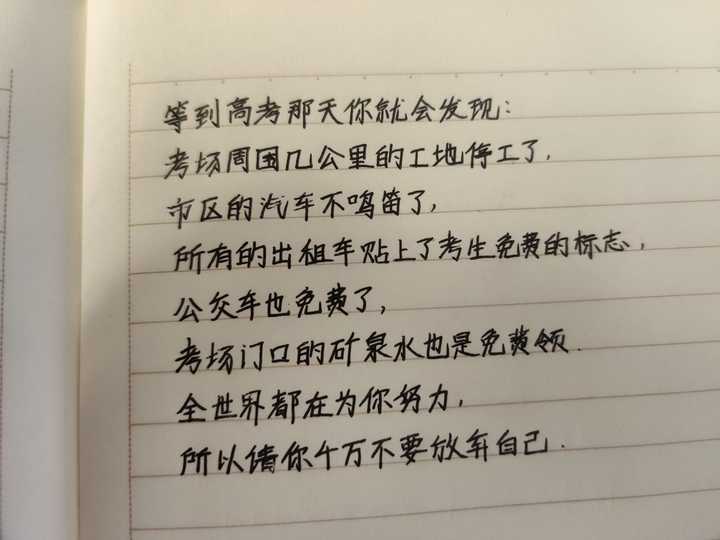 等到高考那天你就会发现:
考场周围几公里的工地停工了,
市区的汽车不鸣笛了,
所有的出租车贴上了考生免费的标志,
公交车也免费了,
考场门口的矿泉水也是免费领.
全世界都在为你努力,
所以请你千万不要放弃自己.